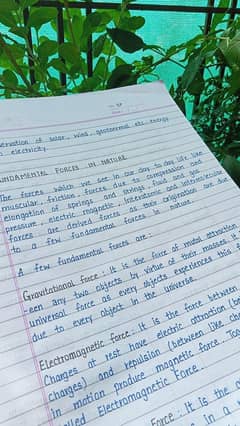 servation of solar, wind, geothermal etc. energy
electricity
NDAMENTAL FORCES IN NATURE
The forces which we see in our day to day life like
muscular, friction, forces due to compression and
elongation of springs and strings, fluid and gas
pressure, electric, magnetic, interatomic and intermolecular
forces are derived forces as their originations are due
to a few fundamental forces in nature.
A few fundamental forces are:
Gravitational Force: It is the force of mutual attraction
-een any two objects by virtue of their masses. It
universal force as every objects experiences this
due to every object in the universe.
Electromagnetic Force: It is the force between
Charges at rest have electric attraction (be
charges) and repulsion (between like char
in motion produce magnetic force. Toge
lled Electromagnetic Force.
Force: It is the